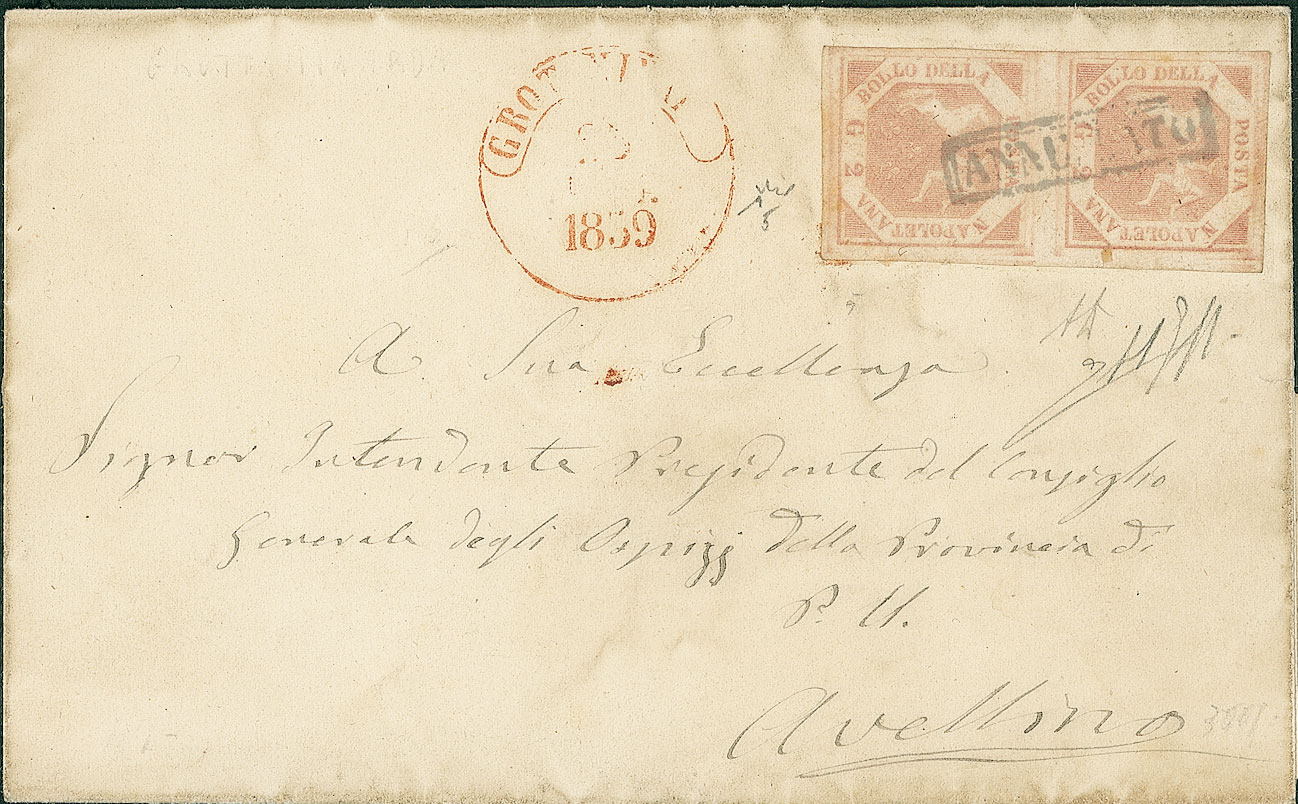 BOLLO DELLA POSTA NAPOLETANA G. 2
BOLLO DELLA POSTA NAPOLETANA G. 2
ANNULLATO
1859
A Sua Eccellenza
Signor Intendente Presidente del Consiglio
Generale degli Ospizj della Provincia di
P. U.
Avellino